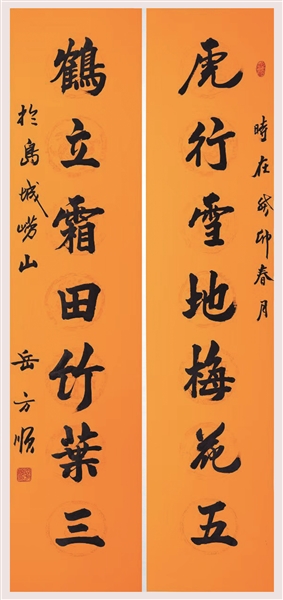 時在癸卯春月
虎行雪地梅花五
鶴立霜田竹葉三
於島城嶗山
岳方順